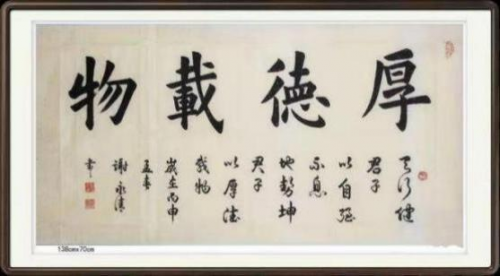 厚德載物
天行健
君子
以自強
不息
地勢坤
君子
以厚德
載物
歲在丙申
孟春
謝永
書
138cmx70cm